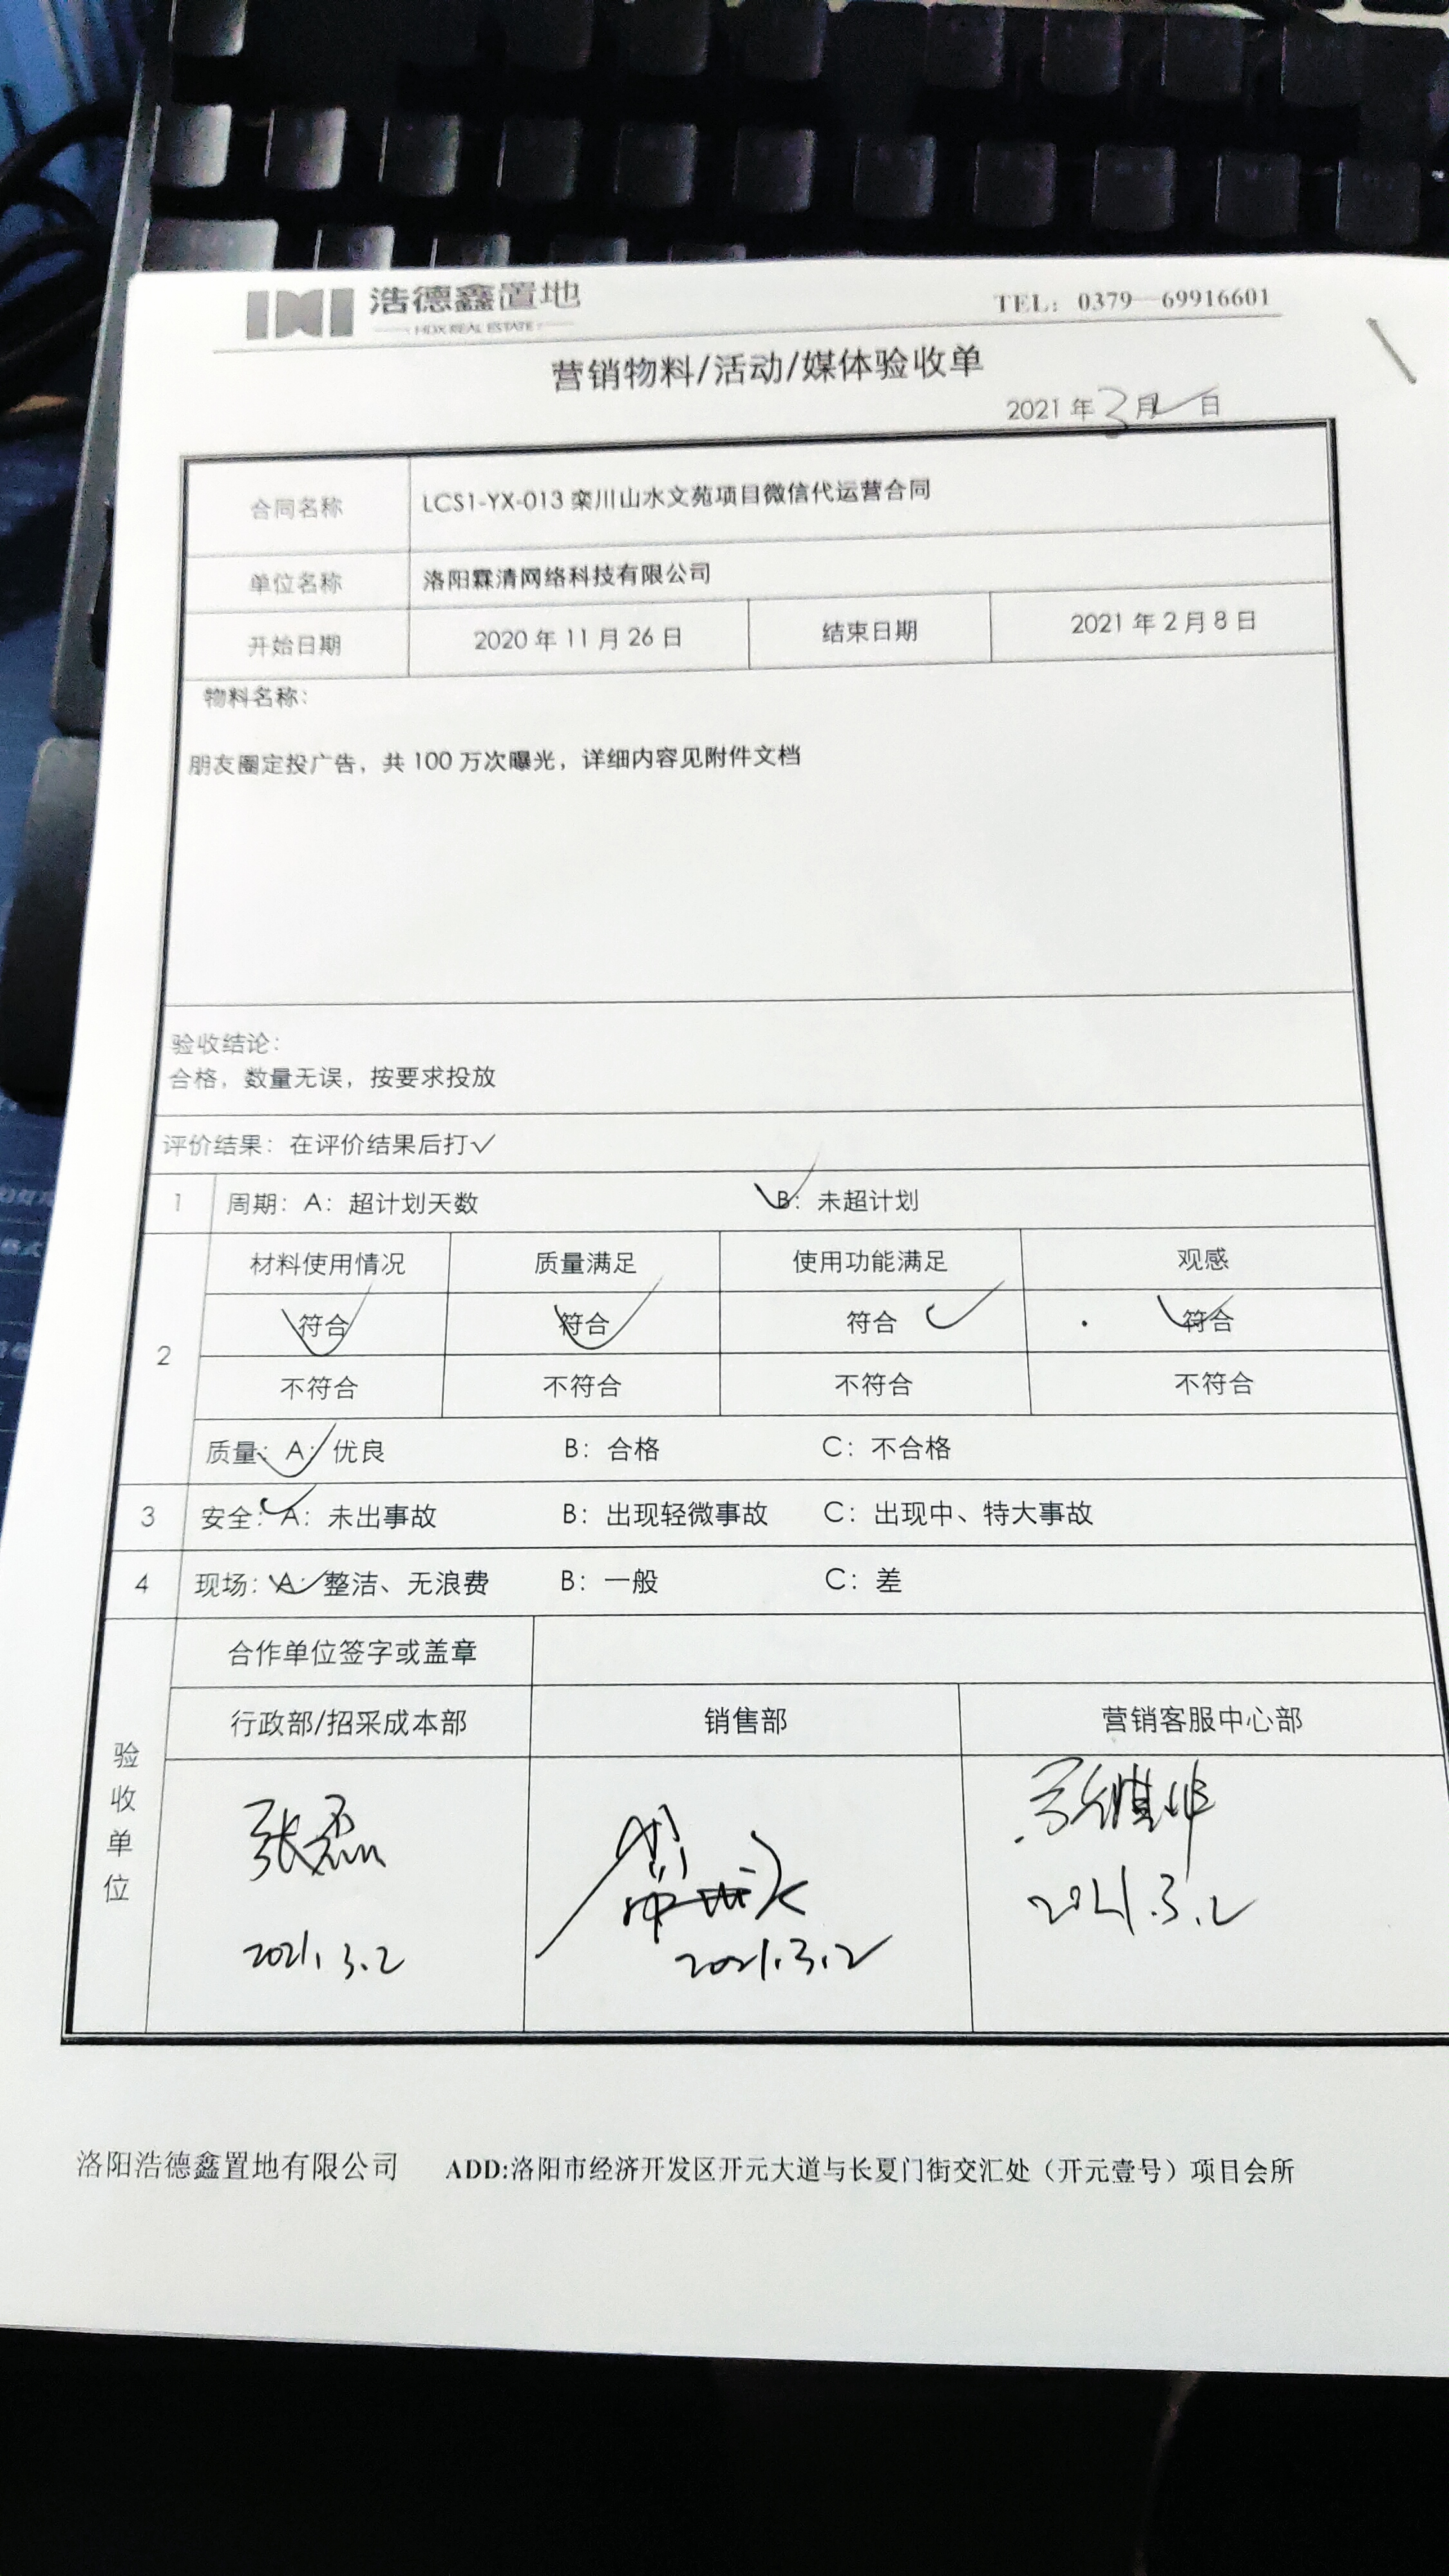 浩德鑫置地
HDX REAL ESTATE
TEL: 0379—69916601
营销物料/活动/媒体验收单
2021 年 3 月 2 日
合同名称 LCS1-YX-013 栾川山水文苑项目微信代运营合同
单位名称 洛阳霖清网络科技有限公司
开始日期 2020 年 11 月 26 日 结束日期 2021 年 2 月 8 日
物料名称：
朋友圈定投广告，共 100 万次曝光，详细内容见附件文档
验收结论：
合格，数量无误，按要求投放
评价结果：在评价结果后打✓
1 周期：A：超计划天数 ✓B：未超计划
2 材料使用情况 质量满足 使用功能满足 观感
符合✓ 符合✓ 符合✓ 符合✓
不符合 不符合 不符合 不符合
质量：A：✓优良 B：合格 C：不合格
3 安全：✓A：未出事故 B：出现轻微事故 C：出现中、特大事故
4 现场：A：✓整洁、无浪费 B：一般 C：差
验收单位
合作单位签字或盖章
行政部/招采成本部 销售部 营销客服中心部
张磊
2021.3.2 2021.3.2 2021.3.2
洛阳浩德鑫置地有限公司 ADD:洛阳市经济开发区开元大道与长夏门街交汇处（开元壹号）项目会所